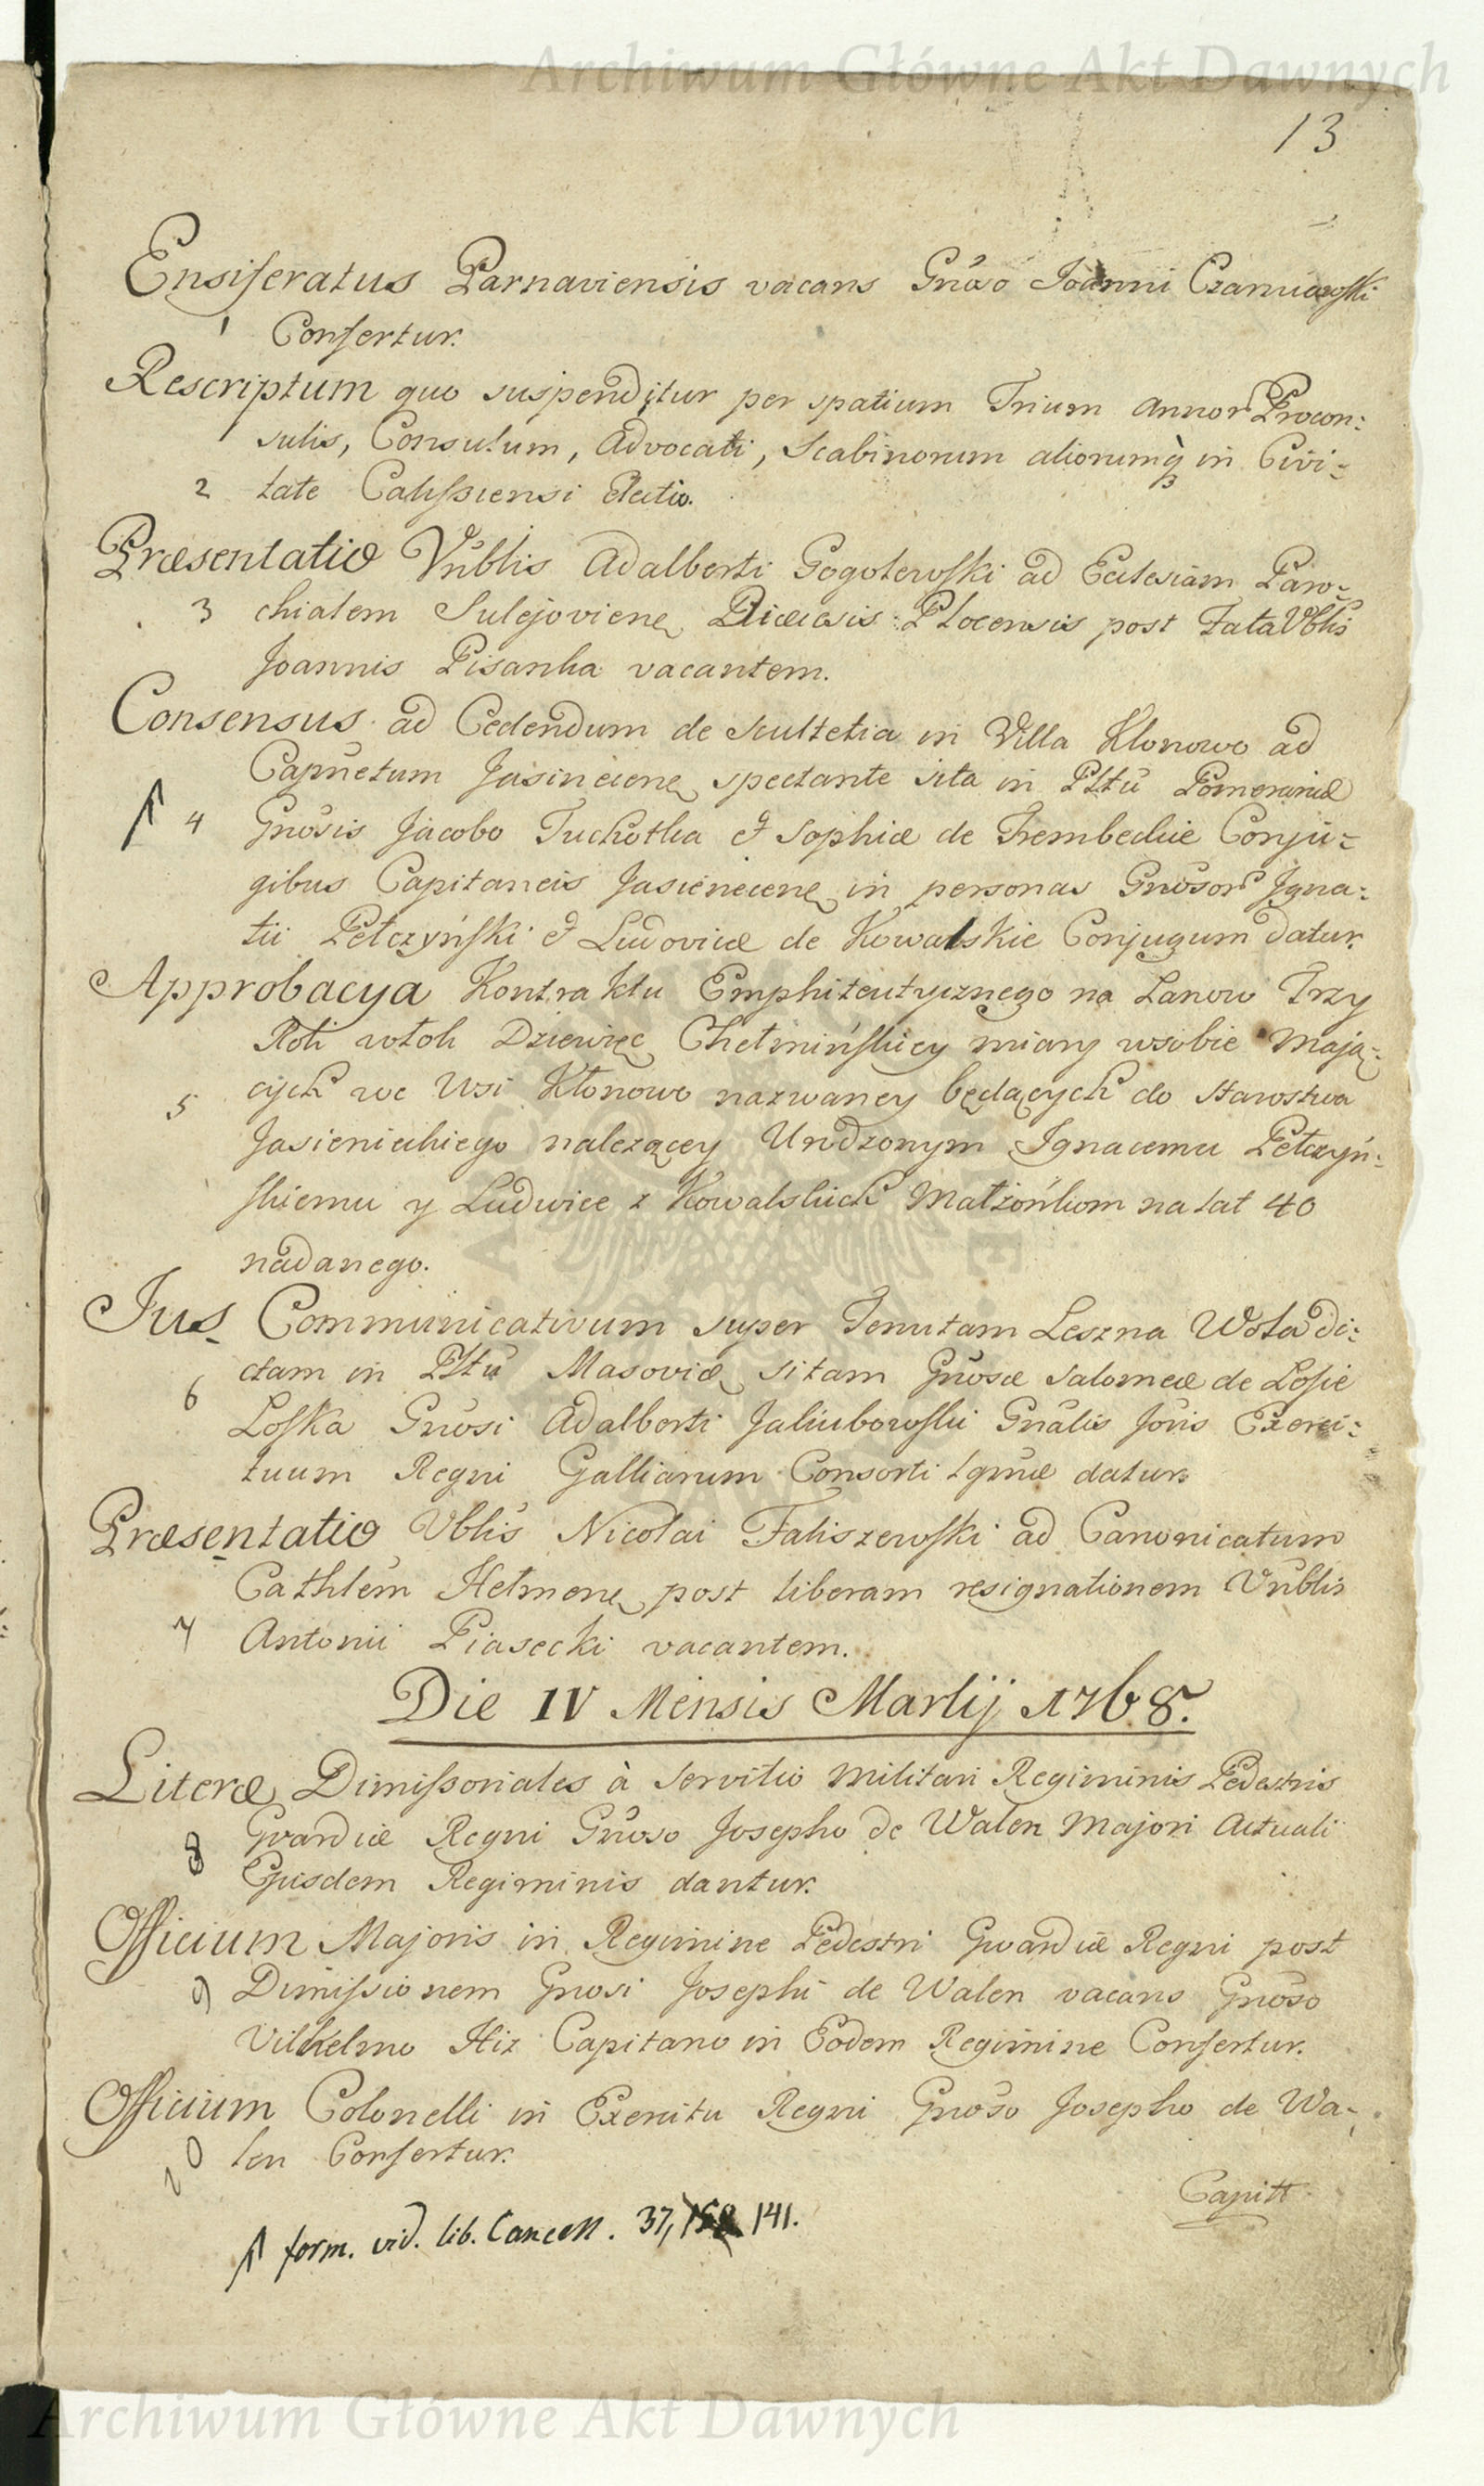 Archiwum Główne Akt Dawnych
13
Ensiferatus Parnaviensis vacans Gnoso Joanni
1 Confertur.
Rescriptum quo suspenditur per spatium Trium annor Procon:
sulis, Consulum, Advocati, Scabinorum aliorumq in Civi-
2 tate Calissiensi Electio.
Præsentatio Vnblis Adalberti Gogolewski ad Ecclesiam Paro-
3 chialem Sulejoviene Diæcesis Plocensis post Fata Vblis
Joannis Pisanka vacantem.
Consensus ad Cedendum de scultetia in Villa Klonowo ad
Capnetum Jasineciene spectante sita in Plttu Pomeraniæ
4 Gnosis Jacobo Tuchołka et Sophiæ de Trembeckie Conju-
gibus Capitaneis Jasieneciene in personas Gnosor Igna:
tii Pełczyński et Ludovicæ de Kowalskie Conjugum datur.
Approbacya Kontraktu Emphiteutycznego na Lanow Trzy
Roli włok Dziewięc Chełmińskiey miary wsobie Mają-
5 cych we Wsi Kłonowo nazwaney będących do Starostwa
Jasienieckiego nalezącey Urodzonym Ignacemu Pełczyń-
skiemu y Ludwice z Kowalskich Małżonkom na lat 40
nadanego.
Jus Communicativum super Tenutam Leszna Wola di:
ctam in Plttu Masoviæ sitam Gnosæ Salomeæ de Losie
6 Loska Gnosi Adalberti Jakubowski Gnalis Joris Exerci:
tuum Regni Galliarum Consorti Lgmæ datur.
Præsentatio Vblis Nicolai Faliszewski ad Canonicatum
Cathlem Helmene post liberam resignationem Vnblis
7 Antonii Piasecki vacantem.
Die IV Mensis Martij 1768.
Literæ Dimissoriales à Servitio Militari Regiminis Pedestris
8 Gvardiæ Regni Gnoso Josepho de Walen Majori Actuali
Ejusdem Regiminis dantur.
Officium Majoris in Regimine Pedestri Gvardiæ Regni post
9 Dimissionem Gnosi Josephi de Walen vacans Gnoso
Vilhelmo Hiz Capitano in Eodem Regimine Confertur.
Officium Colonelli in Exercitu Regni Gnoso Josepho de Wa-
10 len Confertur.
Capitt
form. vid. lib. Cancell. 37, 141.
Archiwum Główne Akt Dawnych